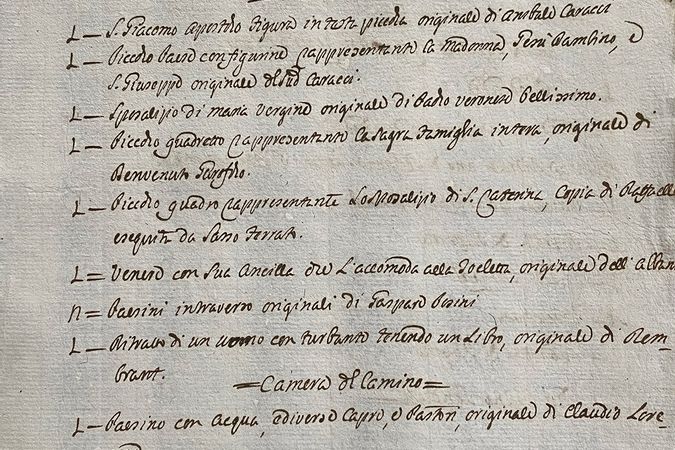 1 — S. Giacomo apostolo figura in tuta piccola originale di Anibale Caracci
1 — Piccolo Paese con figurine rappresentante la Madonna, Gesù Bambino, e
S. Giuseppe originale del sud.º Caracci.
1 — Sposalizio di Maria Vergine originale di Paolo Veronese bellissimo.
1 — Piccolo quadretto rappresentante la Sagra Famiglia intera, originale di
Benvenuto Garofolo.
1 — Piccolo quadro rappresentante lo sposalizio di S. Catterina, Copia di Raffaelle
eseguita da Sasso Ferrato.
1 = Venere con sua Ancilla che l'accomoda alla Toeletta, originale dell'Alban
n = Paesini in traverso originali di Gaspare
1 — Ritratto di un uomo con turbante tenendo un Libro, originale di Rem=
brant.
= Camera del Camino =
1 — Paesino con acqua, e diverse Capre, e Pastori, originale di Claudio Lore=